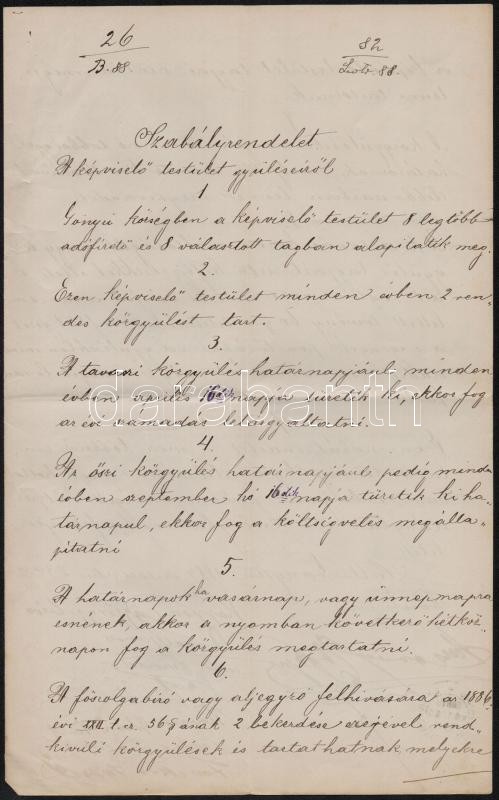 26
B. 88
82
88.
Szabályrendelet
A képviselő testület gyüléseiről
1
Gönyü községben a képviselő testület 8 legtöbb
adófizető és 8 választott tagban alapitatik meg.
2.
Ezen képviselő testület minden évben 2 ren-
des közgyülést tart.
3.
A tavaszi közgyülés határnapjául minden
évben április 16ik napja tüzetik ki, ekkor fog
az évi számadás letárgyaltatni.
4.
Az őszi közgyülés határnapjául pedig minden
évben szeptember hó 16dik napja tüzetik ki ha-
tárnapul, ekkor fog a költségvetés megálla-
pitatni
5.
A határnapok ha vasárnap, vagy ünnepnapra
esnének, akkor a nyomban következő hétköz-
napon fog a közgyülés megtartatni.
6.
A főszolgabiró vagy aljegyző felhivására az 1886
évi XXII. t. cz. 56 § ának 2 bekezdése erejével rend-
kivüli közgyülések is tartathatnak melyekre
darabanth